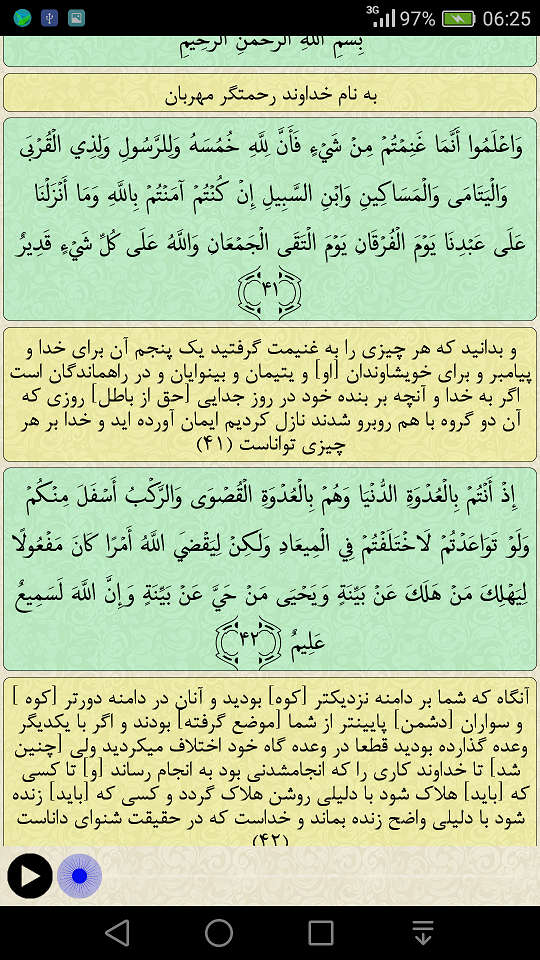 3G 97% 06:25
بِسْمِ اللَّهِ الرَّحْمَنِ الرَّحِيمِ
به نام خداوند رحمتگر مهربان
وَاعْلَمُوا أَنَّمَا غَنِمْتُمْ مِنْ شَيْءٍ فَأَنَّ لِلَّهِ خُمُسَهُ وَلِلرَّسُولِ وَلِذِي الْقُرْبَى
وَالْيَتَامَى وَالْمَسَاكِينِ وَابْنِ السَّبِيلِ إِنْ كُنْتُمْ آمَنْتُمْ بِاللَّهِ وَمَا أَنْزَلْنَا
عَلَى عَبْدِنَا يَوْمَ الْفُرْقَانِ يَوْمَ الْتَقَى الْجَمْعَانِ وَاللَّهُ عَلَى كُلِّ شَيْءٍ قَدِيرٌ
۴۱
و بدانید که هر چیزی را به غنیمت گرفتید یک پنجم آن برای خدا و
پیامبر و برای خویشاوندان [او] و یتیمان و بینوایان و در راهماندگان است
اگر به خدا و آنچه بر بنده خود در روز جدایی [حق از باطل] روزی که
آن دو گروه با هم روبرو شدند نازل کردیم ایمان آورده اید و خدا بر هر
چیزی تواناست (۴۱)
إِذْ أَنْتُمْ بِالْعُدْوَةِ الدُّنْيَا وَهُمْ بِالْعُدْوَةِ الْقُصْوَى وَالرَّكْبُ أَسْفَلَ مِنْكُمْ
وَلَوْ تَوَاعَدْتُمْ لَاخْتَلَفْتُمْ فِي الْمِيعَادِ وَلَكِنْ لِيَقْضِيَ اللَّهُ أَمْرًا كَانَ مَفْعُولًا
لِيَهْلِكَ مَنْ هَلَكَ عَنْ بَيِّنَةٍ وَيَحْيَى مَنْ حَيَّ عَنْ بَيِّنَةٍ وَإِنَّ اللَّهَ لَسَمِيعٌ
عَلِيمٌ ۴۲
آنگاه که شما بر دامنه نزدیکتر [کوه] بودید و آنان در دامنه دورتر [کوه ]
و سواران [دشمن] پایینتر از شما [موضع گرفته] بودند و اگر با یکدیگر
وعده گذارده بودید قطعا در وعده گاه خود اختلاف میکردید ولی [چنین
شد] تا خداوند کاری را که انجامشدنی بود به انجام رساند [و] تا کسی
که [باید] هلاک شود با دلیلی روشن هلاک گردد و کسی که [باید] زنده
شود با دلیلی واضح زنده بماند و خداست که در حقیقت شنوای داناست
(۴۲)